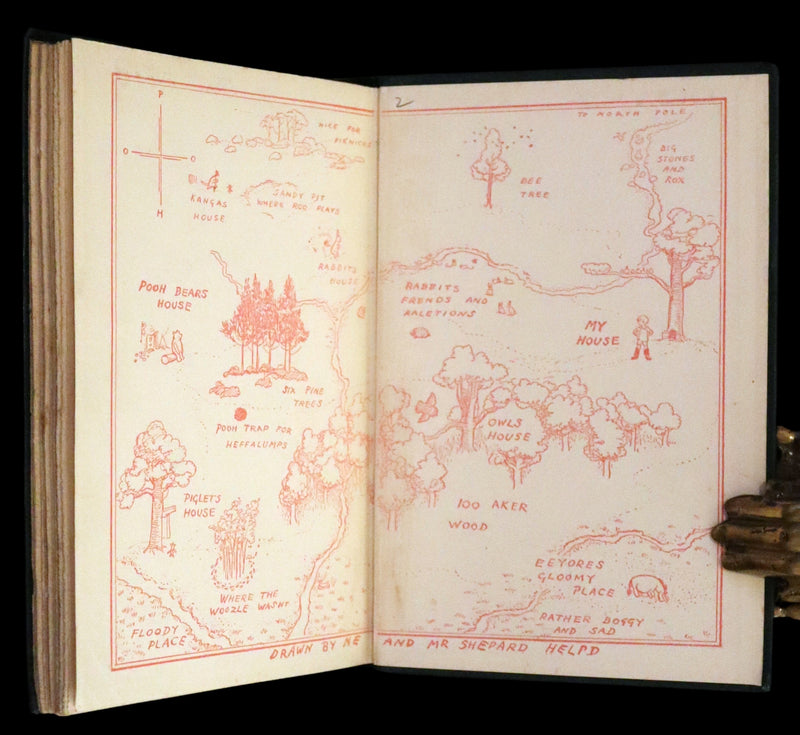 P
O
O
H
NICE FOR
PICNICKS
KANGAS
HOUSE
SANDY PIT
WHERE ROO PLAYS
RABBITS
HOUSE
POOH BEARS
HOUSE
SIX PINE
TREES
POOH TRAP FOR
HEFFALUMPS
PIGLETS
HOUSE
WHERE THE
WOOZLE WASNT
FLOODY
PLACE
2
TO NORTH POLE
BIG
STONES
AND
ROX
BEE
TREE
RABBITS
FRENDS AND
RALETIONS
MY
HOUSE
OWLS
HOUSE
100 AKER
WOOD
EEYORES
GLOOMY
PLACE
RATHER BOGGY
AND SAD
DRAWN BY ME AND MR SHEPARD HELPD